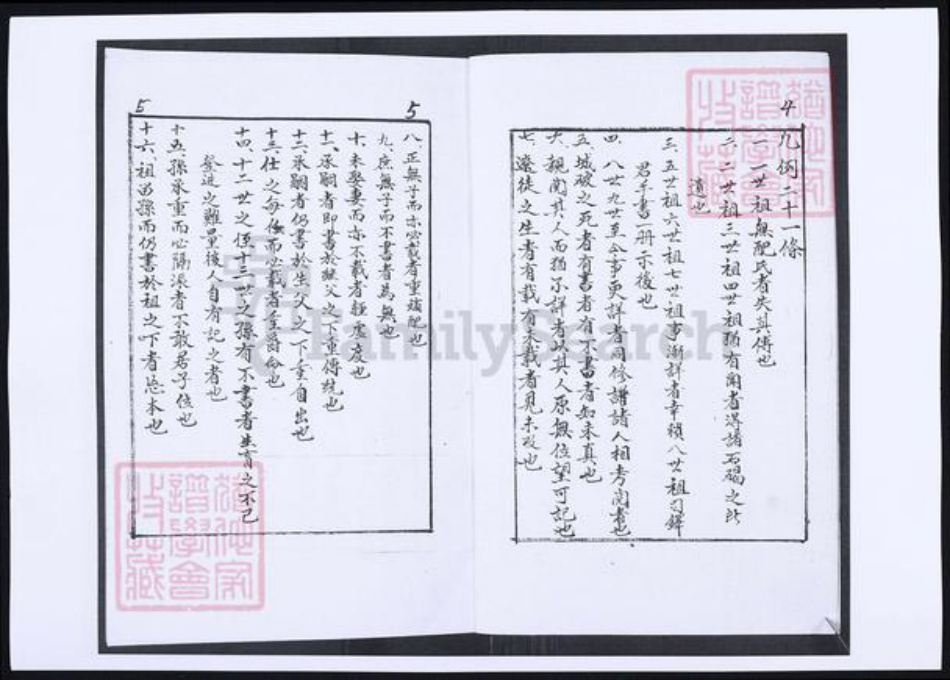 4
凡例二十一條
一、一世祖無配氏者失其傳也
二、二世祖三世祖四世祖猶有闻者得諸石碣之所
遺也
三、五世祖六世祖七世祖事漸詳者幸賴八世祖司鐸
君手書一册示後也
四、八世九世至今事更詳者同修譜諸人相考闻者也
五、城破之死者有書者有不書者知未真也
六、親闻其人而猶不詳者以其人原無位望可記也
七、遷徒之生者有載有未載者見未及也
5
八、正無子而亦必載者重嫡配也
九、庶無子而不書者為無也
十、未娶妻而亦不載者輕丁度也
十一、承嗣者即書於继父之下重傳统也
十二、承嗣者仍書於生父之下重自出也
十三、仕之每任而必載者重爵命也
十四、十二世之侄十三世之孫有不書者生育之不已
登進之難量後人自有記之者也
十五、孫承重而必隔派者不敢居子位也
十六、祖留孫而仍書於祖之下者忘本也
5
譜學會
收藏
FamilySearch